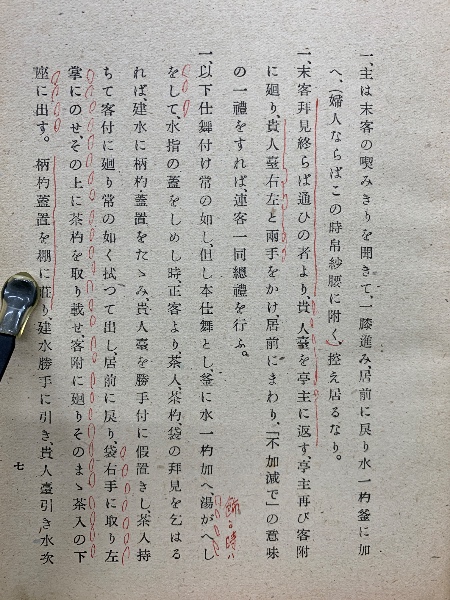 一、主は末客の喫みきりを聞きて、一膝進み、居前に戻り水一杓釜に加
へ、（婦人ならばこの時帛紗腰に附く、）控え居るなり。
一、末客拝見終らば通ひの者より、貴人臺を亭主に返す、亭主再び客附
に廻り、貴人臺右左と兩手をかけ、居前にまわり、「不加減で」の意味
の一禮をすれば、連客一同總禮を行ふ。
一、以下仕舞付け常の如し、但し本仕舞とし、釜に水一杓加へ、湯がへし
をして、水指の蓋をしめし時、正客より茶入、茶杓、袋の拜見を乞はる
れば、建水に柄杓蓋置をたゝみ貴人臺を勝手付に假置きし、茶入持
ちて客付に廻り常の如く拭つて出し、居前に戻り、袋右手に取り左
掌にのせ、その上に茶杓を取り載せ客附に廻りそのまゝ茶入の下
座に出す。柄杓蓋置を棚に荘り、建水勝手に引き、貴人臺引き水次
七